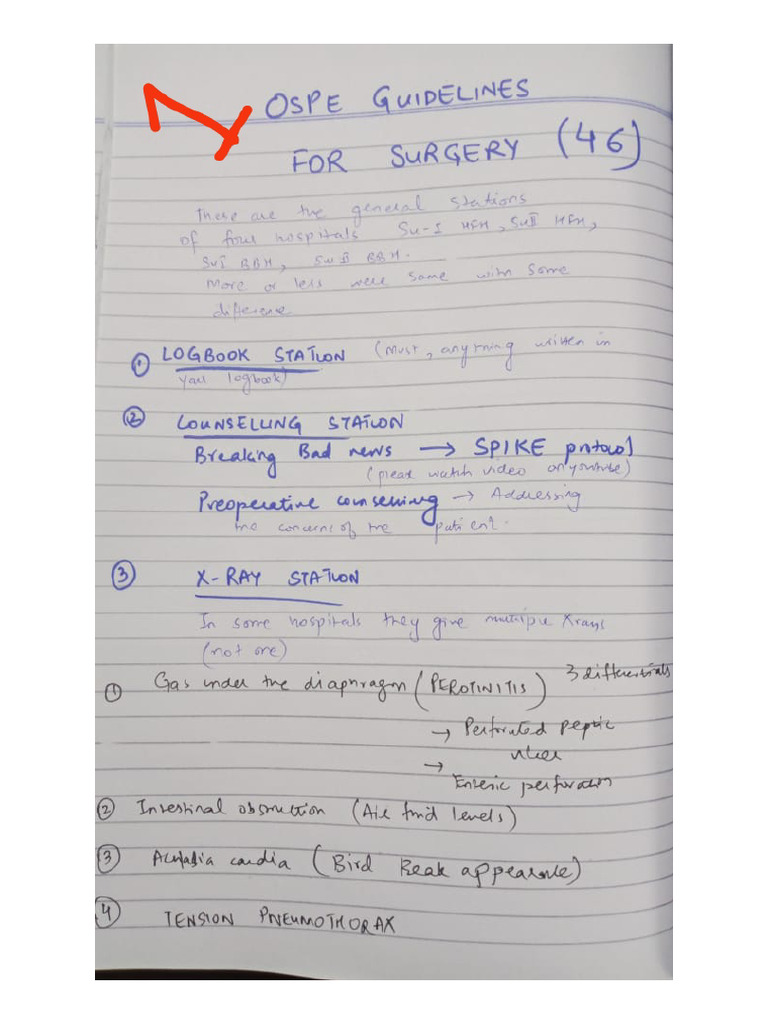 OSPE GUIDELINES
FOR SURGERY (46)
These are the general stations
of four hospitals Su-I HFH, SuII HFH,
SuI BBH, Su II BBH.
More or less were same with some
difference
① LOGBOOK STATION (Must, anything written in
your logbook)
② COUNSELLING STATION
Breaking Bad news → SPIKE protocol
(please watch video on youtube)
Preoperative counselling → Addressing
the concerns of the patient.
③ X-RAY STATION
In some hospitals they give multiple Xrays
(not one)
① Gas under the diaphragm (PEROTINITIS) 3 differentials
→ Perforated peptic
ulcer
→ Enteric perforation
② Intestinal obstruction (Air fluid levels)
③ Achalasia cardia (Bird Beak appearance)
④ TENSION PNEUMOTHORAX